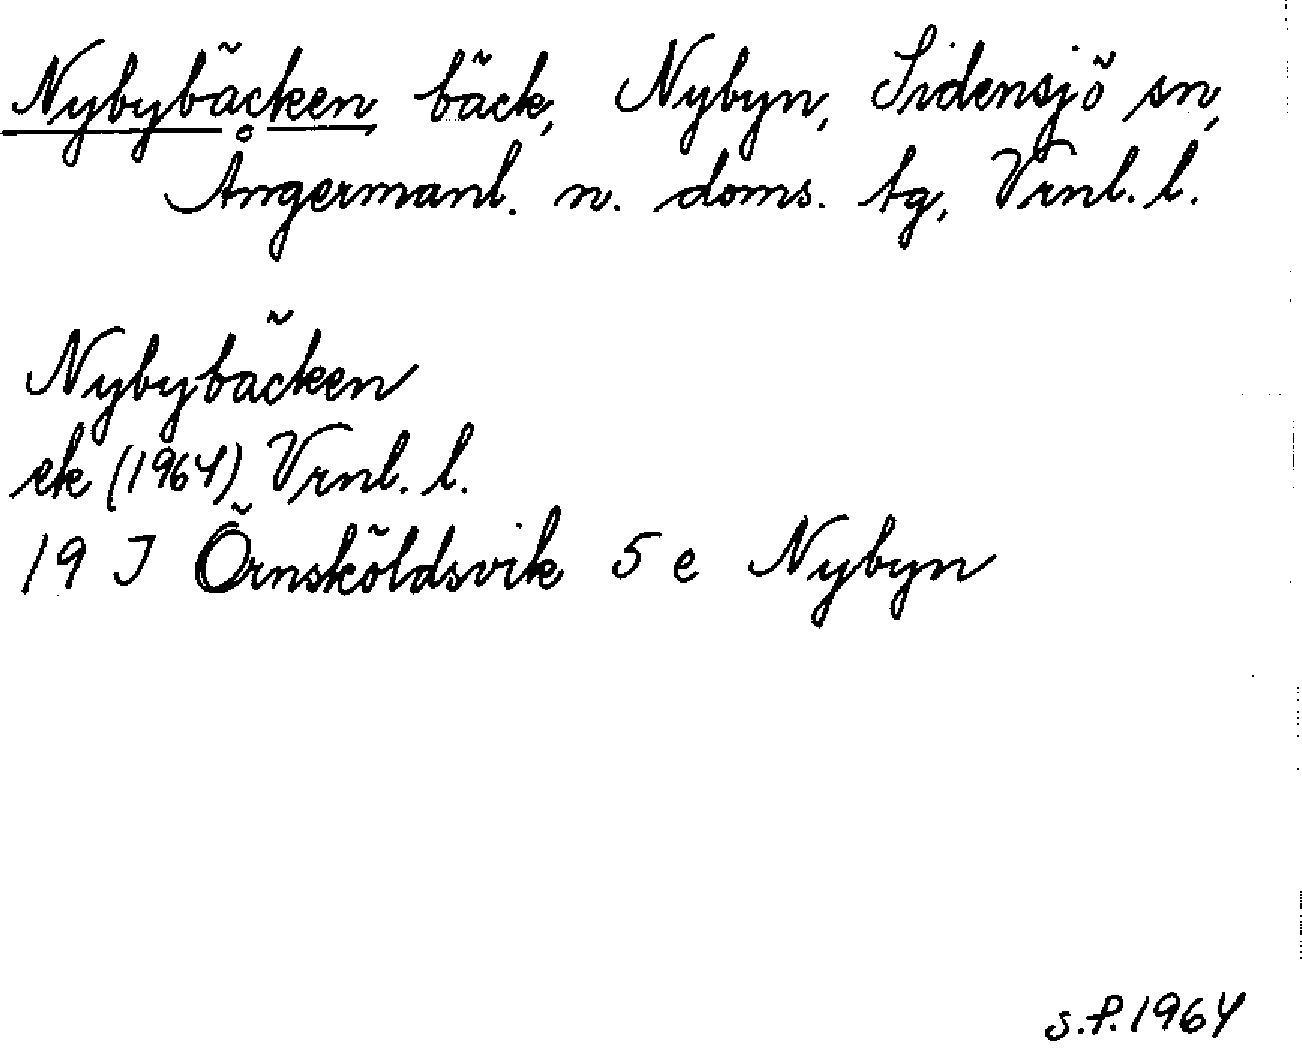 Nybybäcken bäck, Nybyn, Sidensjö sn,
Ångermanl. n. doms. tg, Vrnl. l.
Nybybäcken
ek (1964) Vrnl. l.
19 J Örnsköldsvik 5 e Nybyn
s.f. 1964